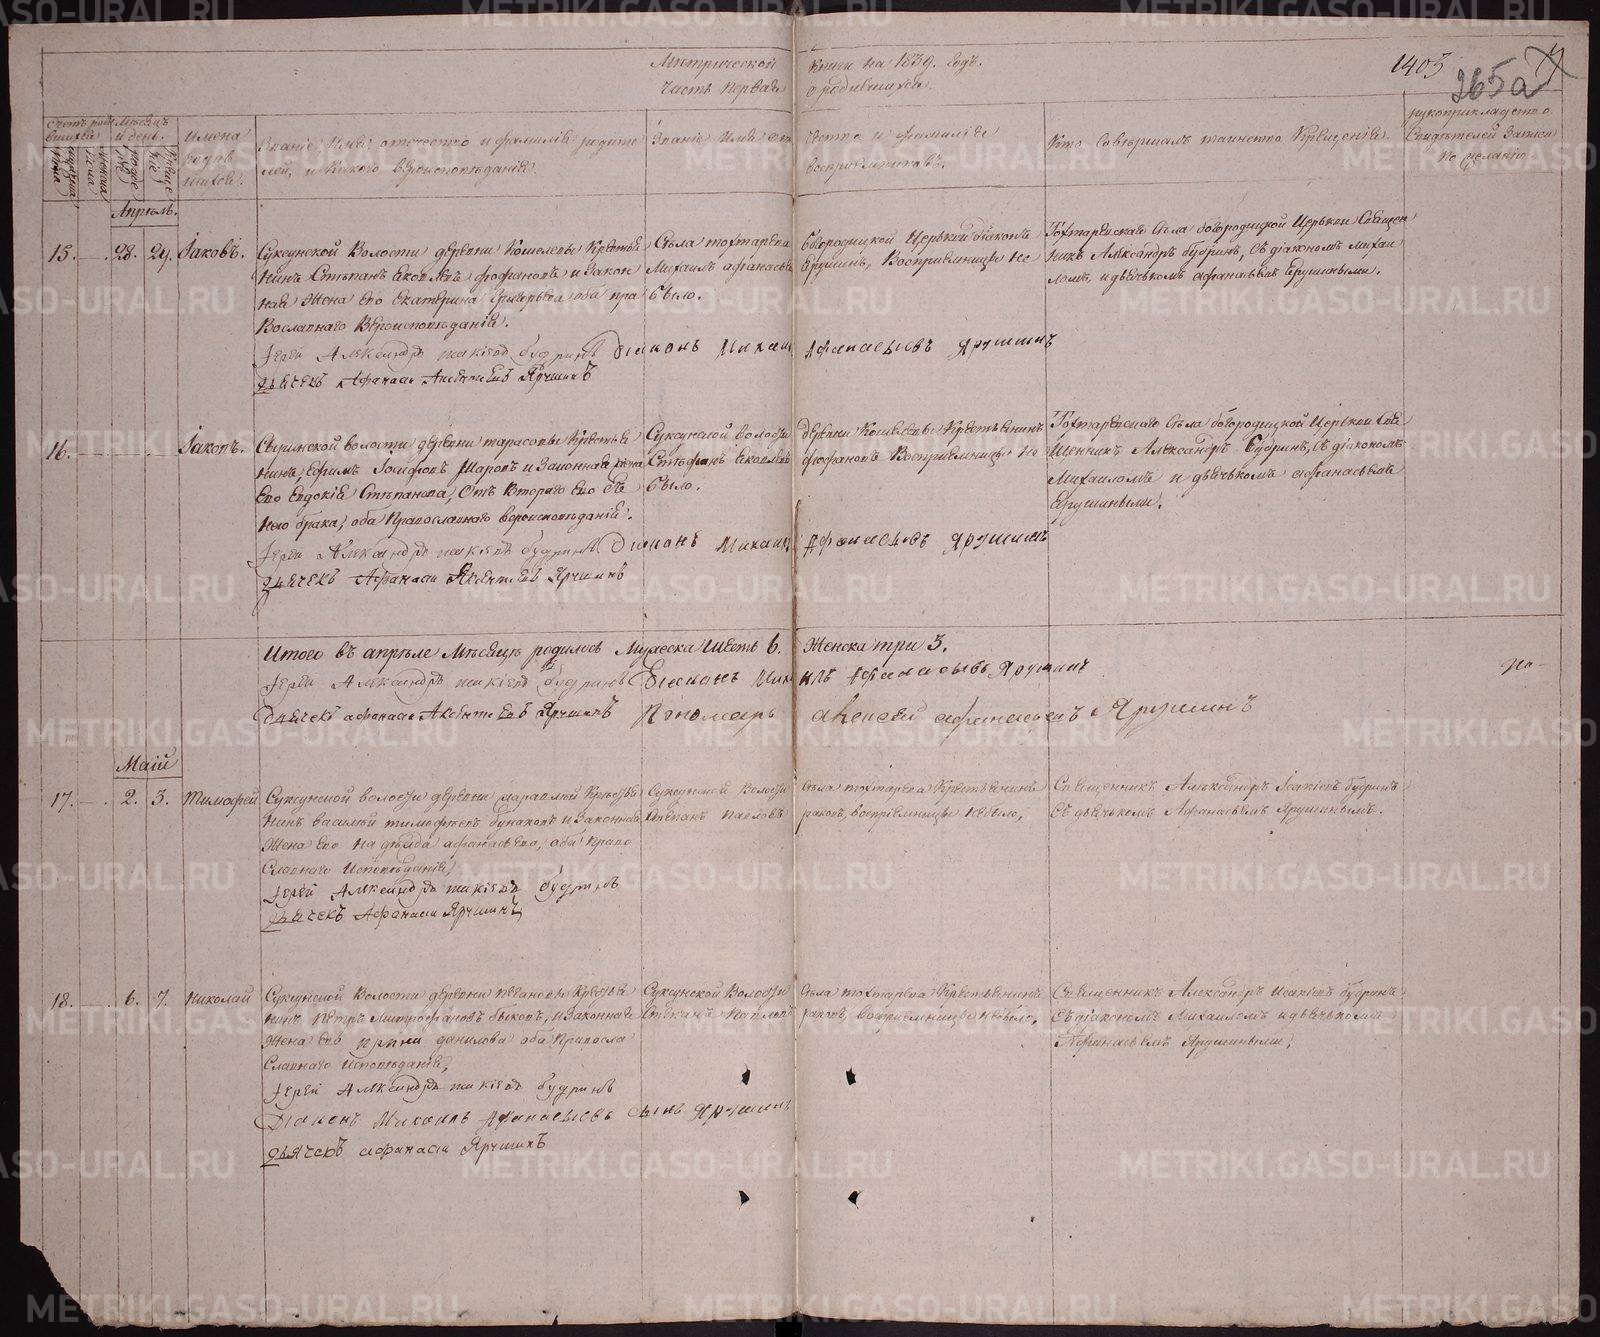 Метрической книги на 1839. годъ.
Часть первая о родившихся.
1403
265а
Счетъ родившихся
Мѣсяцъ и день.
Имена родившихся.
Званіе, Имя, отчество и фамилія родителей, и какого вѣроисповѣданія.
Званіе Имя отчество и фамилія воспріемниковъ.
Кто совершалъ таинство Крещенія.
рукоприкладство свидѣтелей записи по желанію.
Апрѣль.
15. 28. 29. Іаковъ.
Суксунской Волости деревни Кошелевы Крестья
нинъ Стѣпанъ Яковлевъ фофановъ и Закон
ная Жена его Екатерина Григорьева оба пра
вославнаго Вѣроисповѣданія.
Села тохтарева Богородицкой Церькви діаконъ
Михаилъ афанасьевъ Ерушинъ, Воспріемницы не
было.
Тохтаревскаго Села богородицкой Церькви Священ
никъ Александръ будринъ, съ діакономъ михаи
ломъ и дьячькомъ афанасьемъ Ерушиными.
Іерей Александръ Исакіевъ будринъ Діаконъ Михаилъ Афанасьевъ Ярушинъ
дьячекъ Афанаси Аксентиевъ Ярушинъ
16. Іаковъ.
волости деревни тарасовы Крестья
нинъ, Ефимъ Іосифовъ Шаровъ и Законная жена
его Евдокія Стѣпанова, отъ втораго его
брака, оба Православнаго вероисповѣданія.
Суксунской волости деревни Кошелевы Крестьянинъ
Стефанъ Яковлевъ фофановъ Воспріемницы не
было.
Тохтаревскаго Села богородицкой Церькви Свя
щенникъ Александръ Будринъ, съ діакономъ
Михаиломъ и дьячькомъ афанасьемъ
Ерушиными.
Іерей Александръ Исакіевъ будринъ Діаконъ Михаилъ Афанасьевъ Ярушинъ
дьячекъ Афанаси Аксентиевъ Ярушинъ
Итого въ апрѣле мѣсяцѣ родилось Мужеска Шесть 6. Женска три 3.
Іерей Александръ Исакіевъ будринъ Діаконъ Михаилъ Афанасьевъ Ярушинъ
дьячекъ афанаси Аксентиевъ Ярушинъ Пономарь алексей афанасьевъ Ярушинъ
Маій
17. 2. 3. Тимофей
Суксунской волости деревни Крестья
нинъ василий тимофеевъ и Законная
Жена его надѣжда афанасьева, оба право
славнаго Исповѣданія,
Суксунской Волости Села тохтарева Крестьянинъ
Степанъ Павловъ воспріемницы небыло,
Священникъ Александръ Исакіевъ будринъ
съ дьячькомъ Афанасьемъ Ярушинымъ.
Іерей Александръ Исакіевъ будринъ
дьячекъ Афанаси Ярушинъ
18. 6. 7. Николай
Суксунской Волости деревни Крестья
нинъ Петръ Митрофановъ быковъ, и Законная
Жена его данилова оба Правосла
славнаго Исповѣданія,
Суксунской Волости Села тохтарева Крестьянинъ
Степанъ Павловъ воспріемницы небыло,
Священникъ Александръ Исакіевъ будринъ
съ діакономъ Михаиломъ и дьячькомъ
Афанасьемъ Ярушиными.
Іерей Александръ Исакіевъ будринъ
Діаконъ Михаилъ Афанасьевъ сынъ Ярушинъ
дьячекъ афанаси Ярушинъ
METRIKI.GASO-URAL.RU